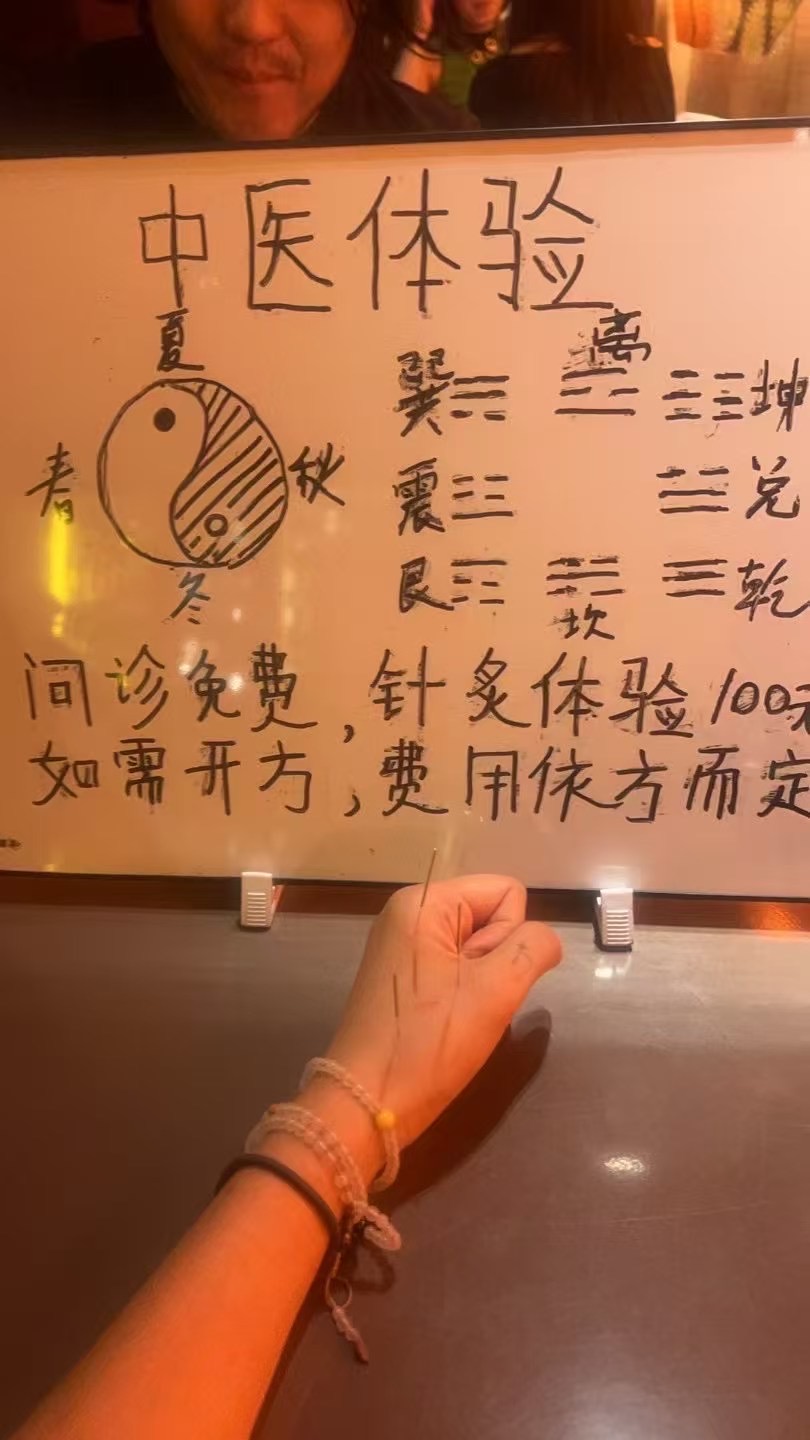 中医体验
夏
春
秋
冬
巽
离
坤
震
兑
艮
坎
乾
问诊免费,针灸体验100元
如需开方,费用依方而定